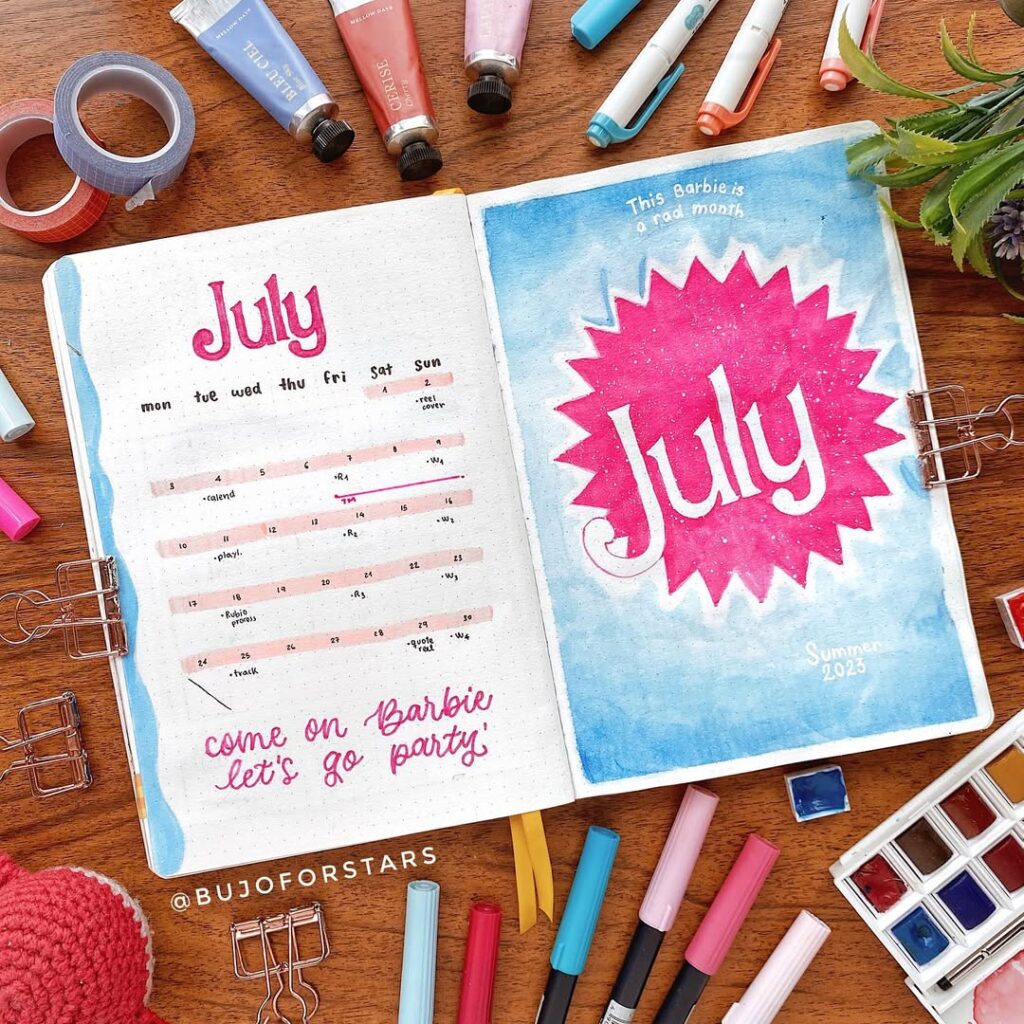 MELLOW DAYS
BLEU CIEL
Blue Sky
MELLOW DAYS
CERISE
Cherry
July
mon tue wed thu fri Sat Sun
1 2
•reel
cover
3 4 5 6 7 8 9
•calend •R1 •W1
TM
10 11 12 13 14 15 16
•playl. •R2 •W2
17 18 19 20 21 22 23
•Rubio
process
•R3 •W3
24 25 26 27 28 29 30
•track •quote
reel
•W4
come on Barbie
let's go party'
This Barbie is
a rad month
July
Summer
2023
@BUJOFORSTARS